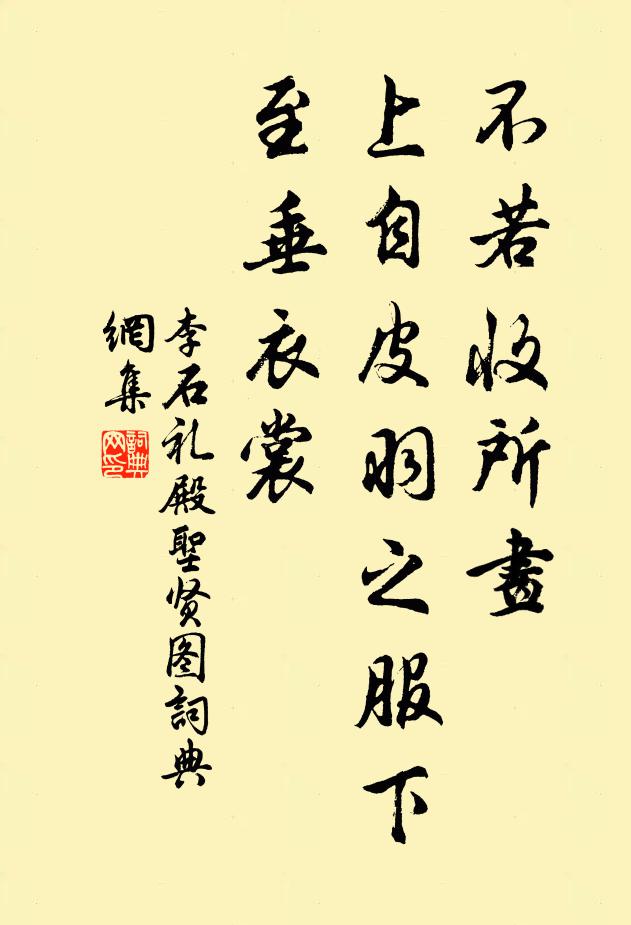 不若收所畫
上自皮羽之服下
至垂衣裳
李石礼殿聖贤图詞典
網集
詞典網印